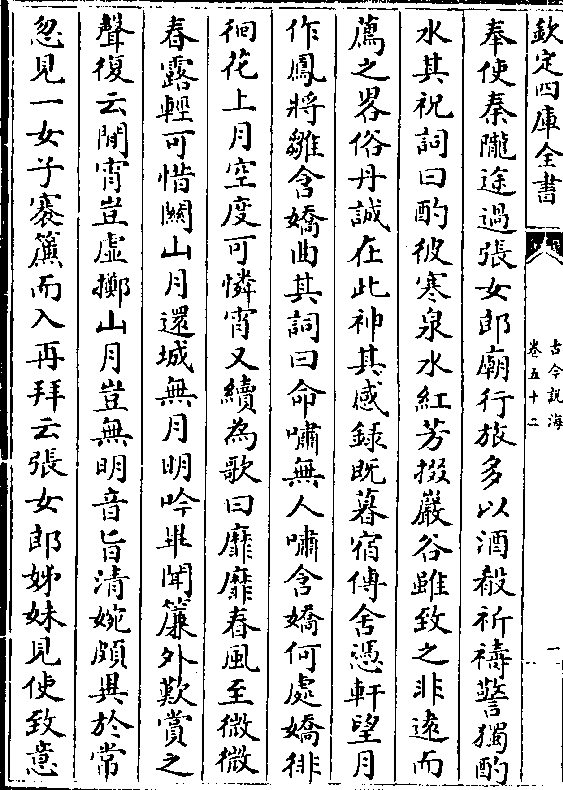 欽定四庫全書
古今說海
卷五十二
一
奉使秦隴途過張女郎廟行旅多以酒殽祈禱警獨酌
水其祝詞曰酌彼寒泉水紅芳掇巖谷雖致之非遠而
薦之畧俗丹誠在此神其感錄既暮宿傳舍憑軒望月
作鳳將雛含嬌曲其詞曰命嘯無人嘯含嬌何處嬌徘
徊花上月空度可憐宵又續為歌曰靡靡春風至微微
春露輕可惜關山月還城無月明吟畢聞簾外歎賞之
聲復云閒宵豈虛擲山月豈無明音旨清婉頗異於常
忽見一女子褰簾而入再拜云張女郎姊妹見使致意